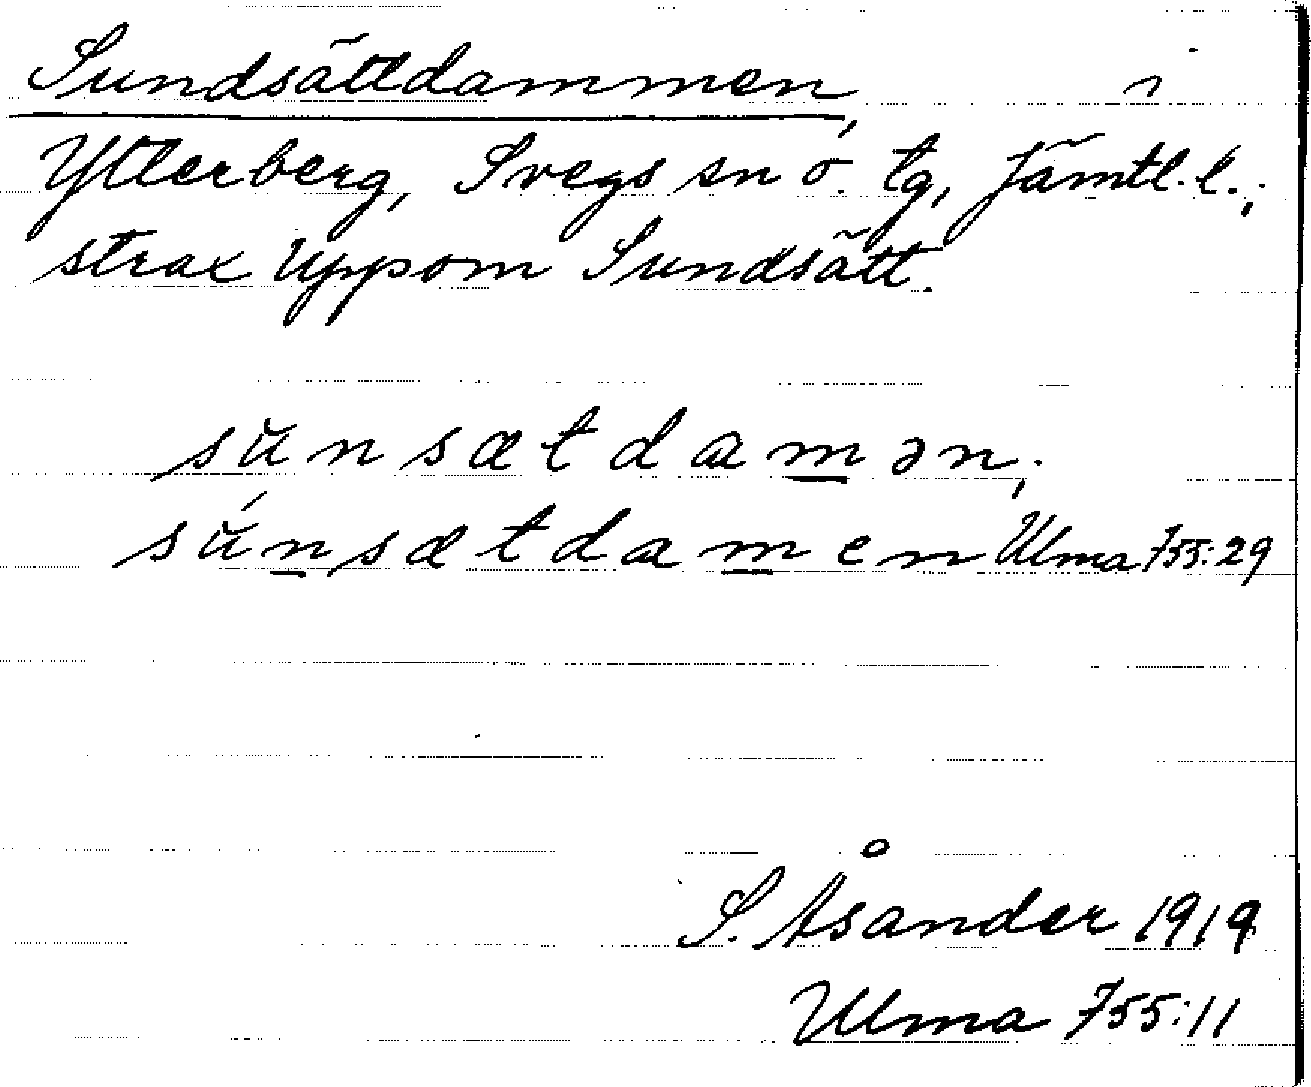 Sundsättdammen, i
Ytterberg, Svegs sn o. tg, Jämtl. l.;
strax uppom Sundsätt.
sŭnsætdamən;
sŭ́nsætdamen Ulma 755:29
S. Åsander 1919
Ulma 755:11